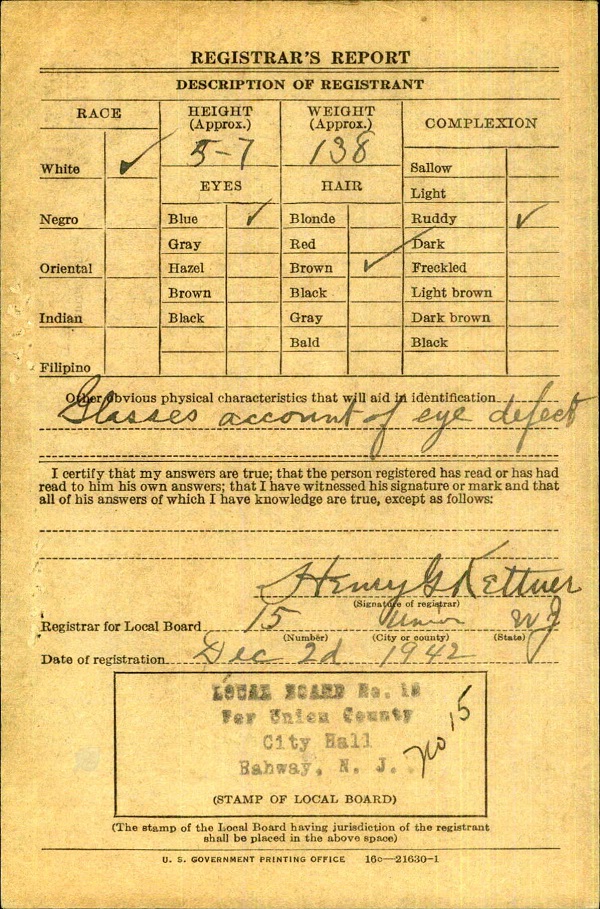 REGISTRAR'S REPORT
DESCRIPTION OF REGISTRANT
RACE
HEIGHT (Approx.)
WEIGHT (Approx.)
COMPLEXION
5-7
138
White ✓
EYES
HAIR
Sallow
Light
Negro
Blue ✓
Blonde
Ruddy ✓
Gray
Red
Dark
Oriental
Hazel
Brown ✓
Freckled
Brown
Black
Light brown
Indian
Black
Gray
Dark brown
Bald
Black
Filipino
Other obvious physical characteristics that will aid in identification
Glasses account of eye defect
I certify that my answers are true; that the person registered has read or has had
read to him his own answers; that I have witnessed his signature or mark and that
all of his answers of which I have knowledge are true, except as follows:
Henry G Kettner
(Signature of registrar)
Registrar for Local Board 15 Union NJ
(Number) (City or county) (State)
Date of registration Dec 2d 1942
LOCAL BOARD No. 15
For Union County
City Hall
Rahway, N. J.
No 15
(STAMP OF LOCAL BOARD)
(The stamp of the Local Board having jurisdiction of the registrant
shall be placed in the above space)
U. S. GOVERNMENT PRINTING OFFICE 16c—21630-1